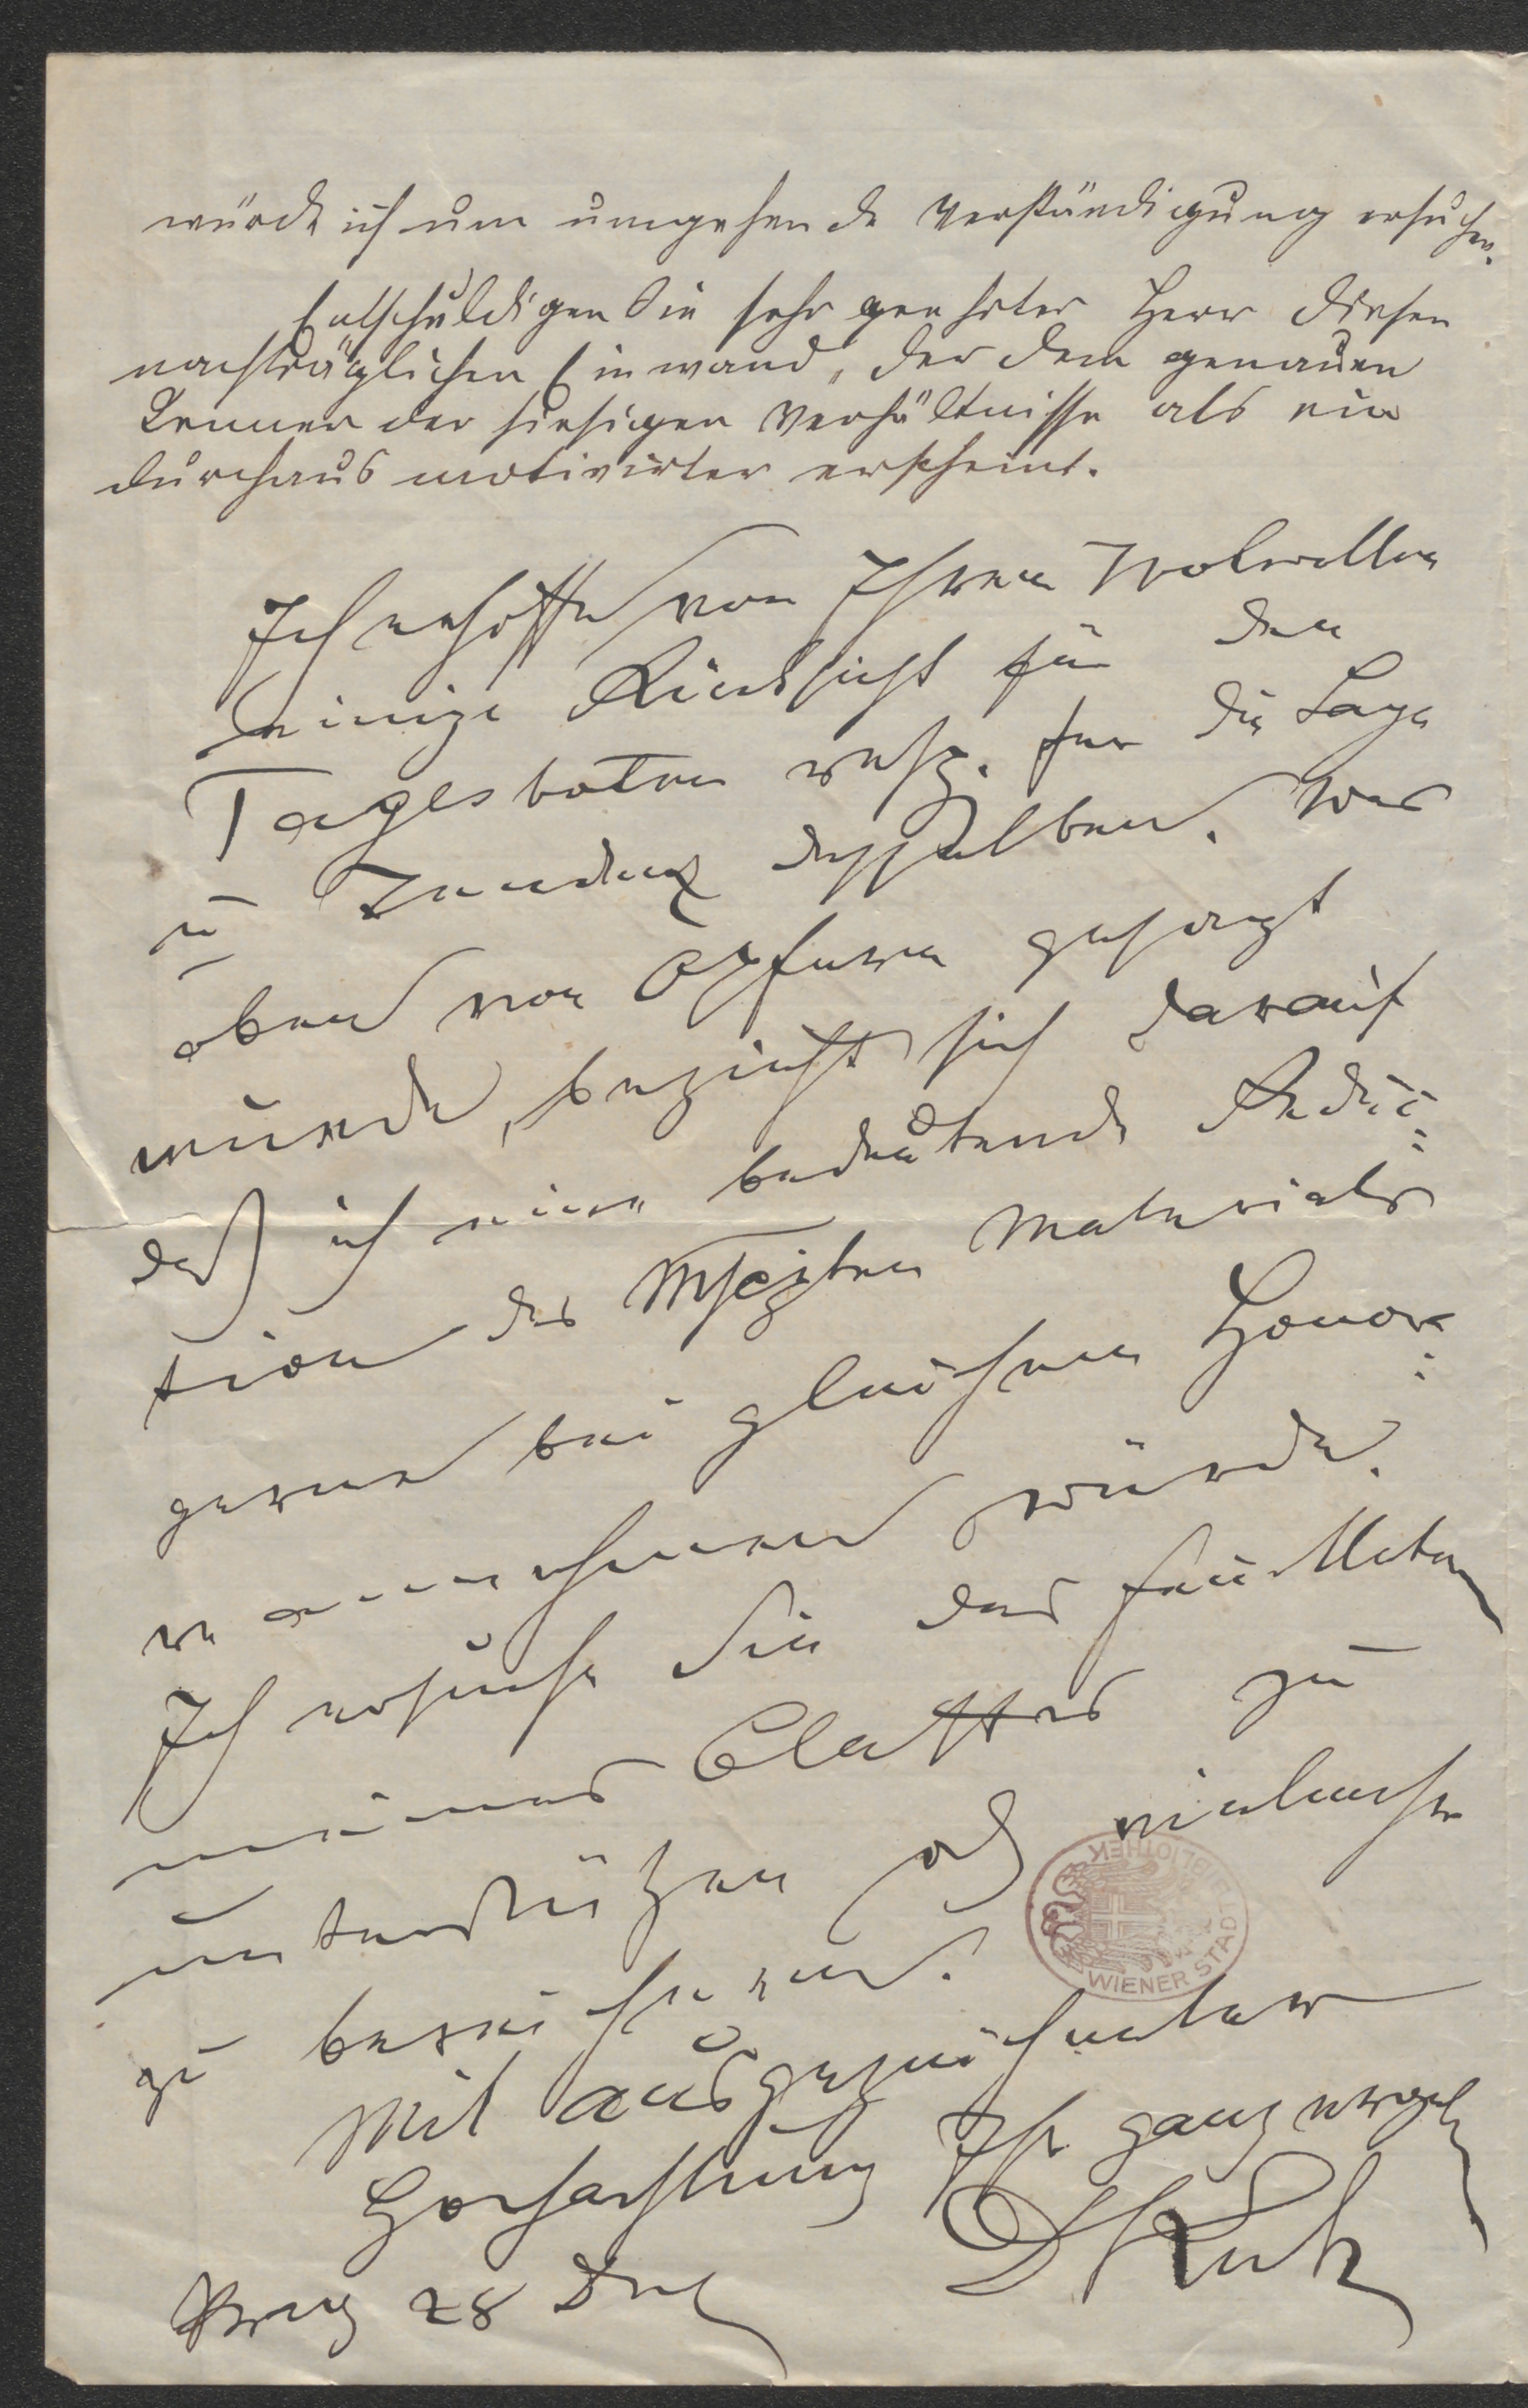 würde ich um umgehende Verständigung ersuchen.
Entschuldigen Sie sehr geehrter Herr diesen
nachträglichen Einwand, der dem genauen
Kenner der hiesigen Verhältnisse als ein
durchaus motivirter erscheint.
Ich erhoffe von Ihrem Wolwollen
einige Rücksicht für den
Tagesboten resp. für die Lage
u Tendenz desselben. Was
oben von Opfern gesagt
wurde, bezieht sich darauf
daß ich eine bedeutende Reduc=
tion des Materials
gerne bei gleichem Honor
annehmen würde.
Ich ersuche Sie das Feuilleton
meines Blattes zu
unterstützen als vielmehr
zu bereichern.
Mit ausgezeichneter
Hochachtung Ihr ganz ergeb
DKuh
Prag 28 Dez
WIENER STADTBIBLIOTHEK